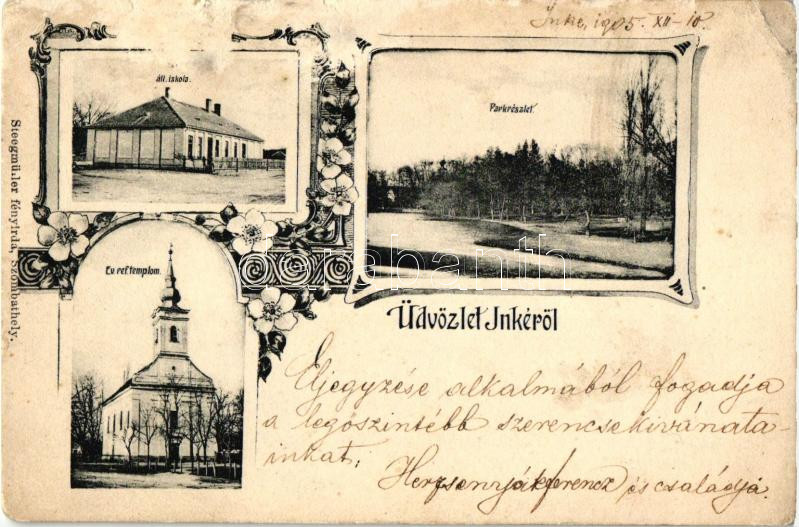 Inke, 1905. XII-10.
áll. iskola.
Parkrészlet.
Ev. ref. templom.
Steegmüller fényirda, Szombathely.
darabanth
Üdvözlet Inkéről
Eljegyzése alkalmából fogadja
a legőszintébb szerencsekivánata-
inkat;
ferencz és családja